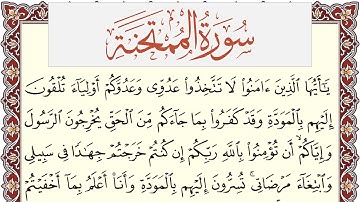 سُورَةُ الْمُمْتَحَنَةِ
يَٰٓأَيُّهَا الَّذِينَ ءَامَنُوا۟ لَا تَتَّخِذُوا۟ عَدُوِّى وَعَدُوَّكُمْ أَوْلِيَآءَ تُلْقُونَ
إِلَيْهِم بِالْمَوَدَّةِ وَقَدْ كَفَرُوا۟ بِمَا جَآءَكُم مِّنَ الْحَقِّ يُخْرِجُونَ الرَّسُولَ
وَإِيَّاكُمْ ۙ أَن تُؤْمِنُوا۟ بِاللَّهِ رَبِّكُمْ إِن كُنتُمْ خَرَجْتُمْ جِهَٰدًا فِى سَبِيلِى
وَابْتِغَآءَ مَرْضَاتِى ۚ تُسِرُّونَ إِلَيْهِم بِالْمَوَدَّةِ وَأَنَا۠ أَعْلَمُ بِمَآ أَخْفَيْتُمْ